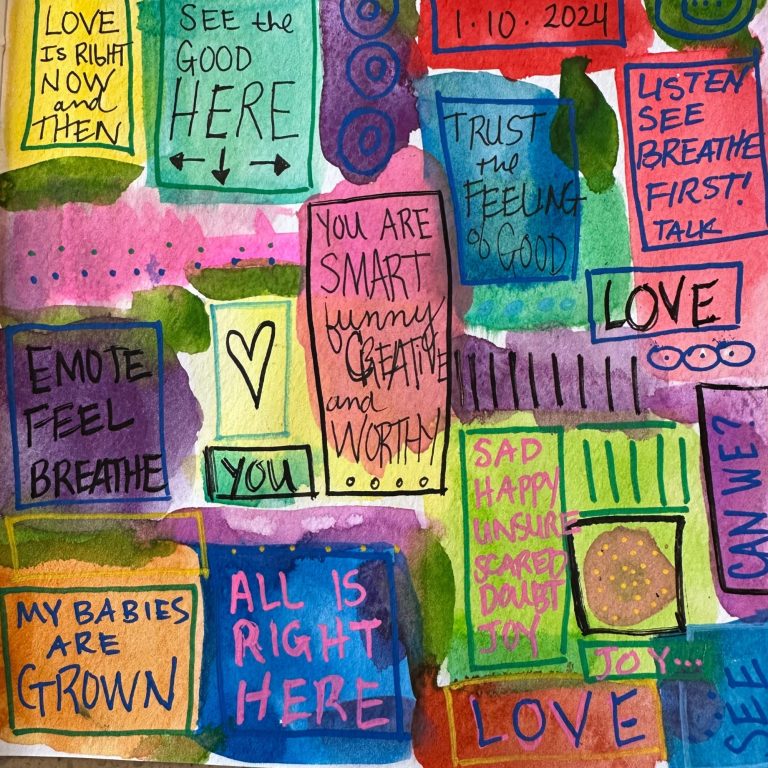 LOVE
Is RIGHT
NOW
and
THEN
SEE the
GOOD
HERE
1.10.2024
TRUST
the
FEELING
of GOOD
LISTEN
SEE
BREATHE
FIRST!
TALK
YOU ARE
SMART
funny
CREATIVE
and
WORTHY
LOVE
EMOTE
FEEL
BREATHE
YOU
SAD
HAPPY
UNSURE
SCARED
DOUBT
JOY
CAN WE?
MY BABIES
ARE
GROWN
ALL IS
RIGHT
HERE
JOY...
LOVE
SEE